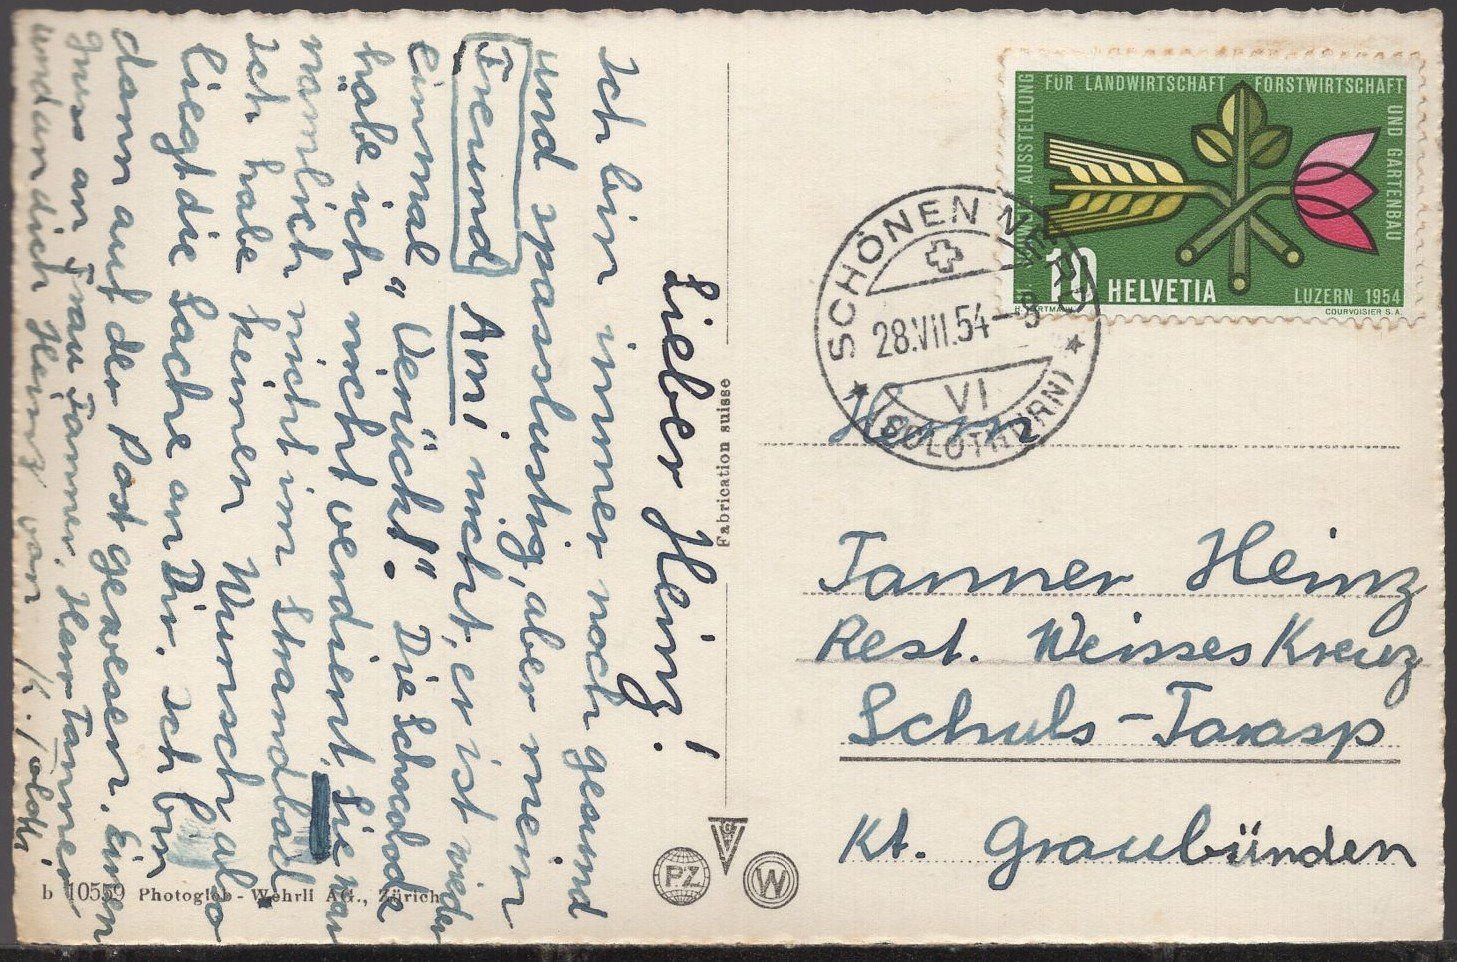 Lieber Heinz!
Ich bin immer noch gesund
und spasslustig, aber mein
Freund Ami nicht, er ist wieder
einmal "Verückt". Die Schocolade
habe ich nicht verdient. Sie war
nämlich nicht im Strandbad
Ich habe keinen Wunsch also
liegt die Sache an Dir. Ich bin
dann auf der Post gewesen. Einen
Gruss an Frau Tanner, Herr Tanner
und an dich Heinz von
Fabrication suisse
b 10559 Photoglob - Wehrli AG., Zürich
PZ
G
W
AUSSTELLUNG FÜR LANDWIRTSCHAFT FORSTWIRTSCHAFT UND GARTENBAU
10 HELVETIA
LUZERN 1954
COURVOISIER S.A.
SCHÖNENWERD
28.VII.54-8
VI
(SOLOTHURN)
Herr
Tanner Heinz
Rest. Weisses Kreuz
Schuls-Tarasp
Kt. Graubünden